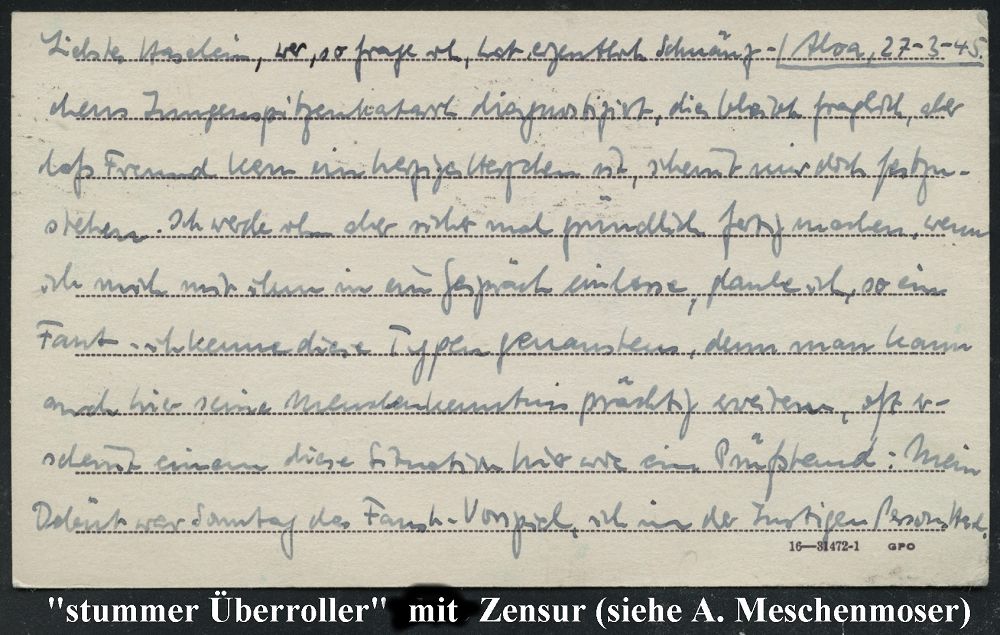 Liebstes Haselein, wer, so frage ich, hat eigentlich Schwänz- / Alva, 27-3-45.
chens Lungenspitzenkatarrh diagnostiziert, dies bleibt fraglich, aber
daß Freund ein herziges Herzchen ist, scheint mir doch festzu-
stehen. Ich werde ihn aber sicher mal gründlich fertig machen, wenn
ich mich mit ihm in ein Gespräch einlasse, glaube ich, so ein
Fant - ich kenne diese Typen genaustens, denn man kann
auch hier seine Menschenkenntnis prächtig erweitern, oft er-
scheint einem diese Situation hier wie ein Prüfstand: Mein
Debüt war Sonntag das Faust-Vorspiel, ich in der Lustigen Person
16—31472-1 GPO
"stummer Überroller" mit Zensur (siehe A. Meschenmoser)